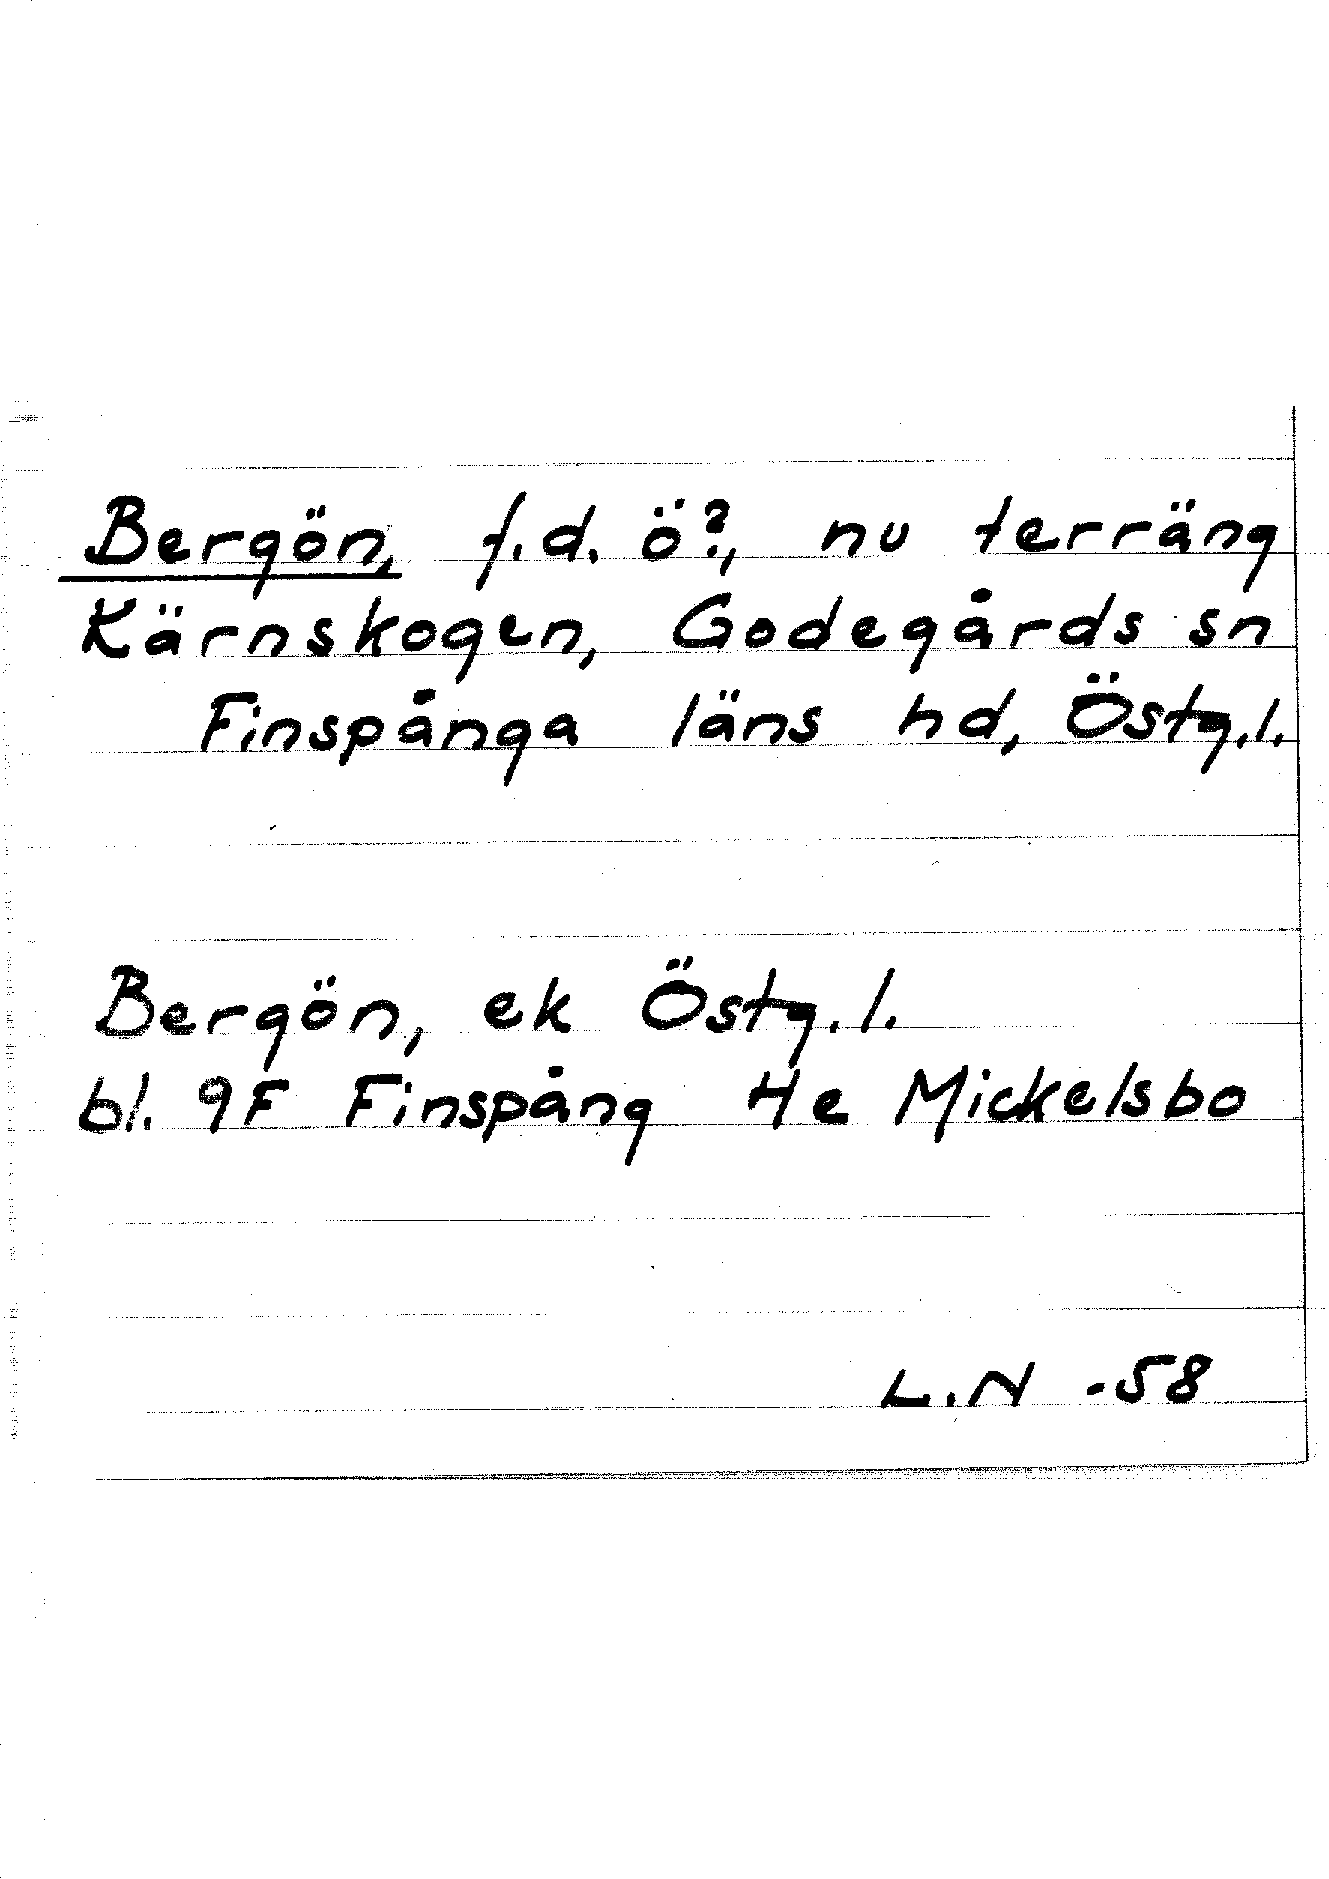 Bergön, f.d. ö?, nu terräng
Kärnskogen, Godegårds sn
Finspånga läns hd, Östg.l.
Bergön, ek Östg.l.
bl. 9F Finspång 4e Mickelsbo
L.N -58